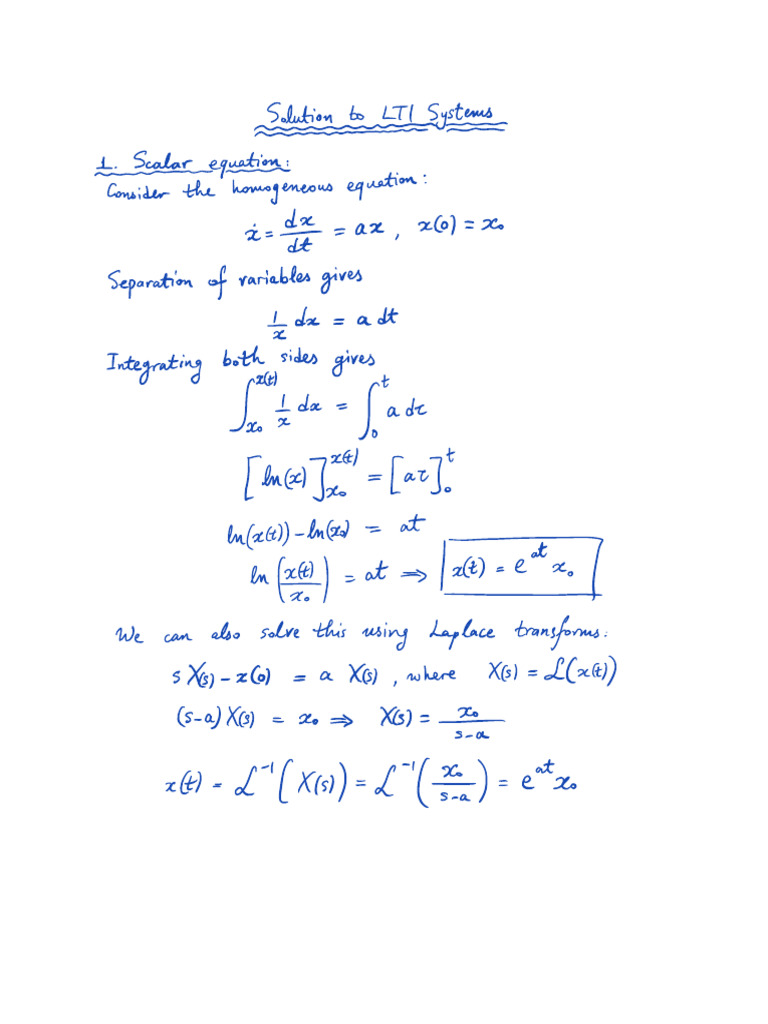 Solution to LTI Systems
1. Scalar equation:
Consider the homogeneous equation:
ẋ = dx/dt = ax, x(0) = x₀
Separation of variables gives
1/x dx = a dt
Integrating both sides gives
∫_{x₀}^{x(t)} 1/x dx = ∫_0^t a dτ
[ln(x)]_{x₀}^{x(t)} = [aτ]_0^t
ln(x(t)) - ln(x₀) = at
ln(x(t)/x₀) = at ⇒ x(t) = e^{at} x₀
We can also solve this using Laplace transforms:
sX(s) - x(0) = a X(s), where X(s) = ℒ(x(t))
(s-a)X(s) = x₀ ⇒ X(s) = x₀/(s-a)
x(t) = ℒ⁻¹(X(s)) = ℒ⁻¹(x₀/(s-a)) = e^{at} x₀